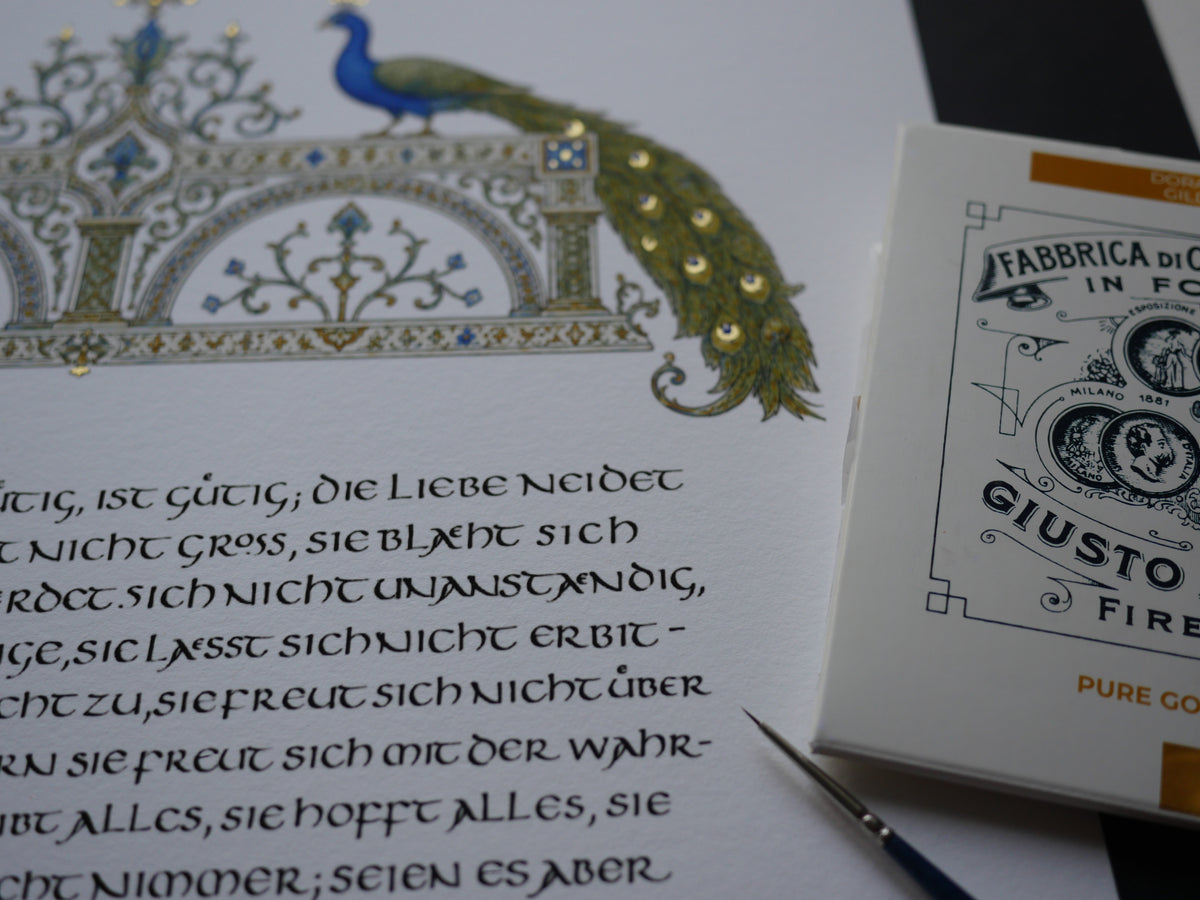 IST GŮTIG; DIE LIEBE NEIDET
NICHT GROSS, SIE BLÆHT SICH
SICH NICHT UNANSTÆNDIG,
SIE LÆSST SICH NICHT ERBIT-
ZU, SIE FREUT SICH NICHT ŮBER
SIE FREUT SICH MIT DER WAHR-
ALLES, SIE HOFFT ALLES, SIE
NIMMER; SEIEN ES ABER
FABBRICA DI
IN
ESPOSIZIONE
MILANO 1881
MILANO
D'ITALIA
GIUSTO
PURE